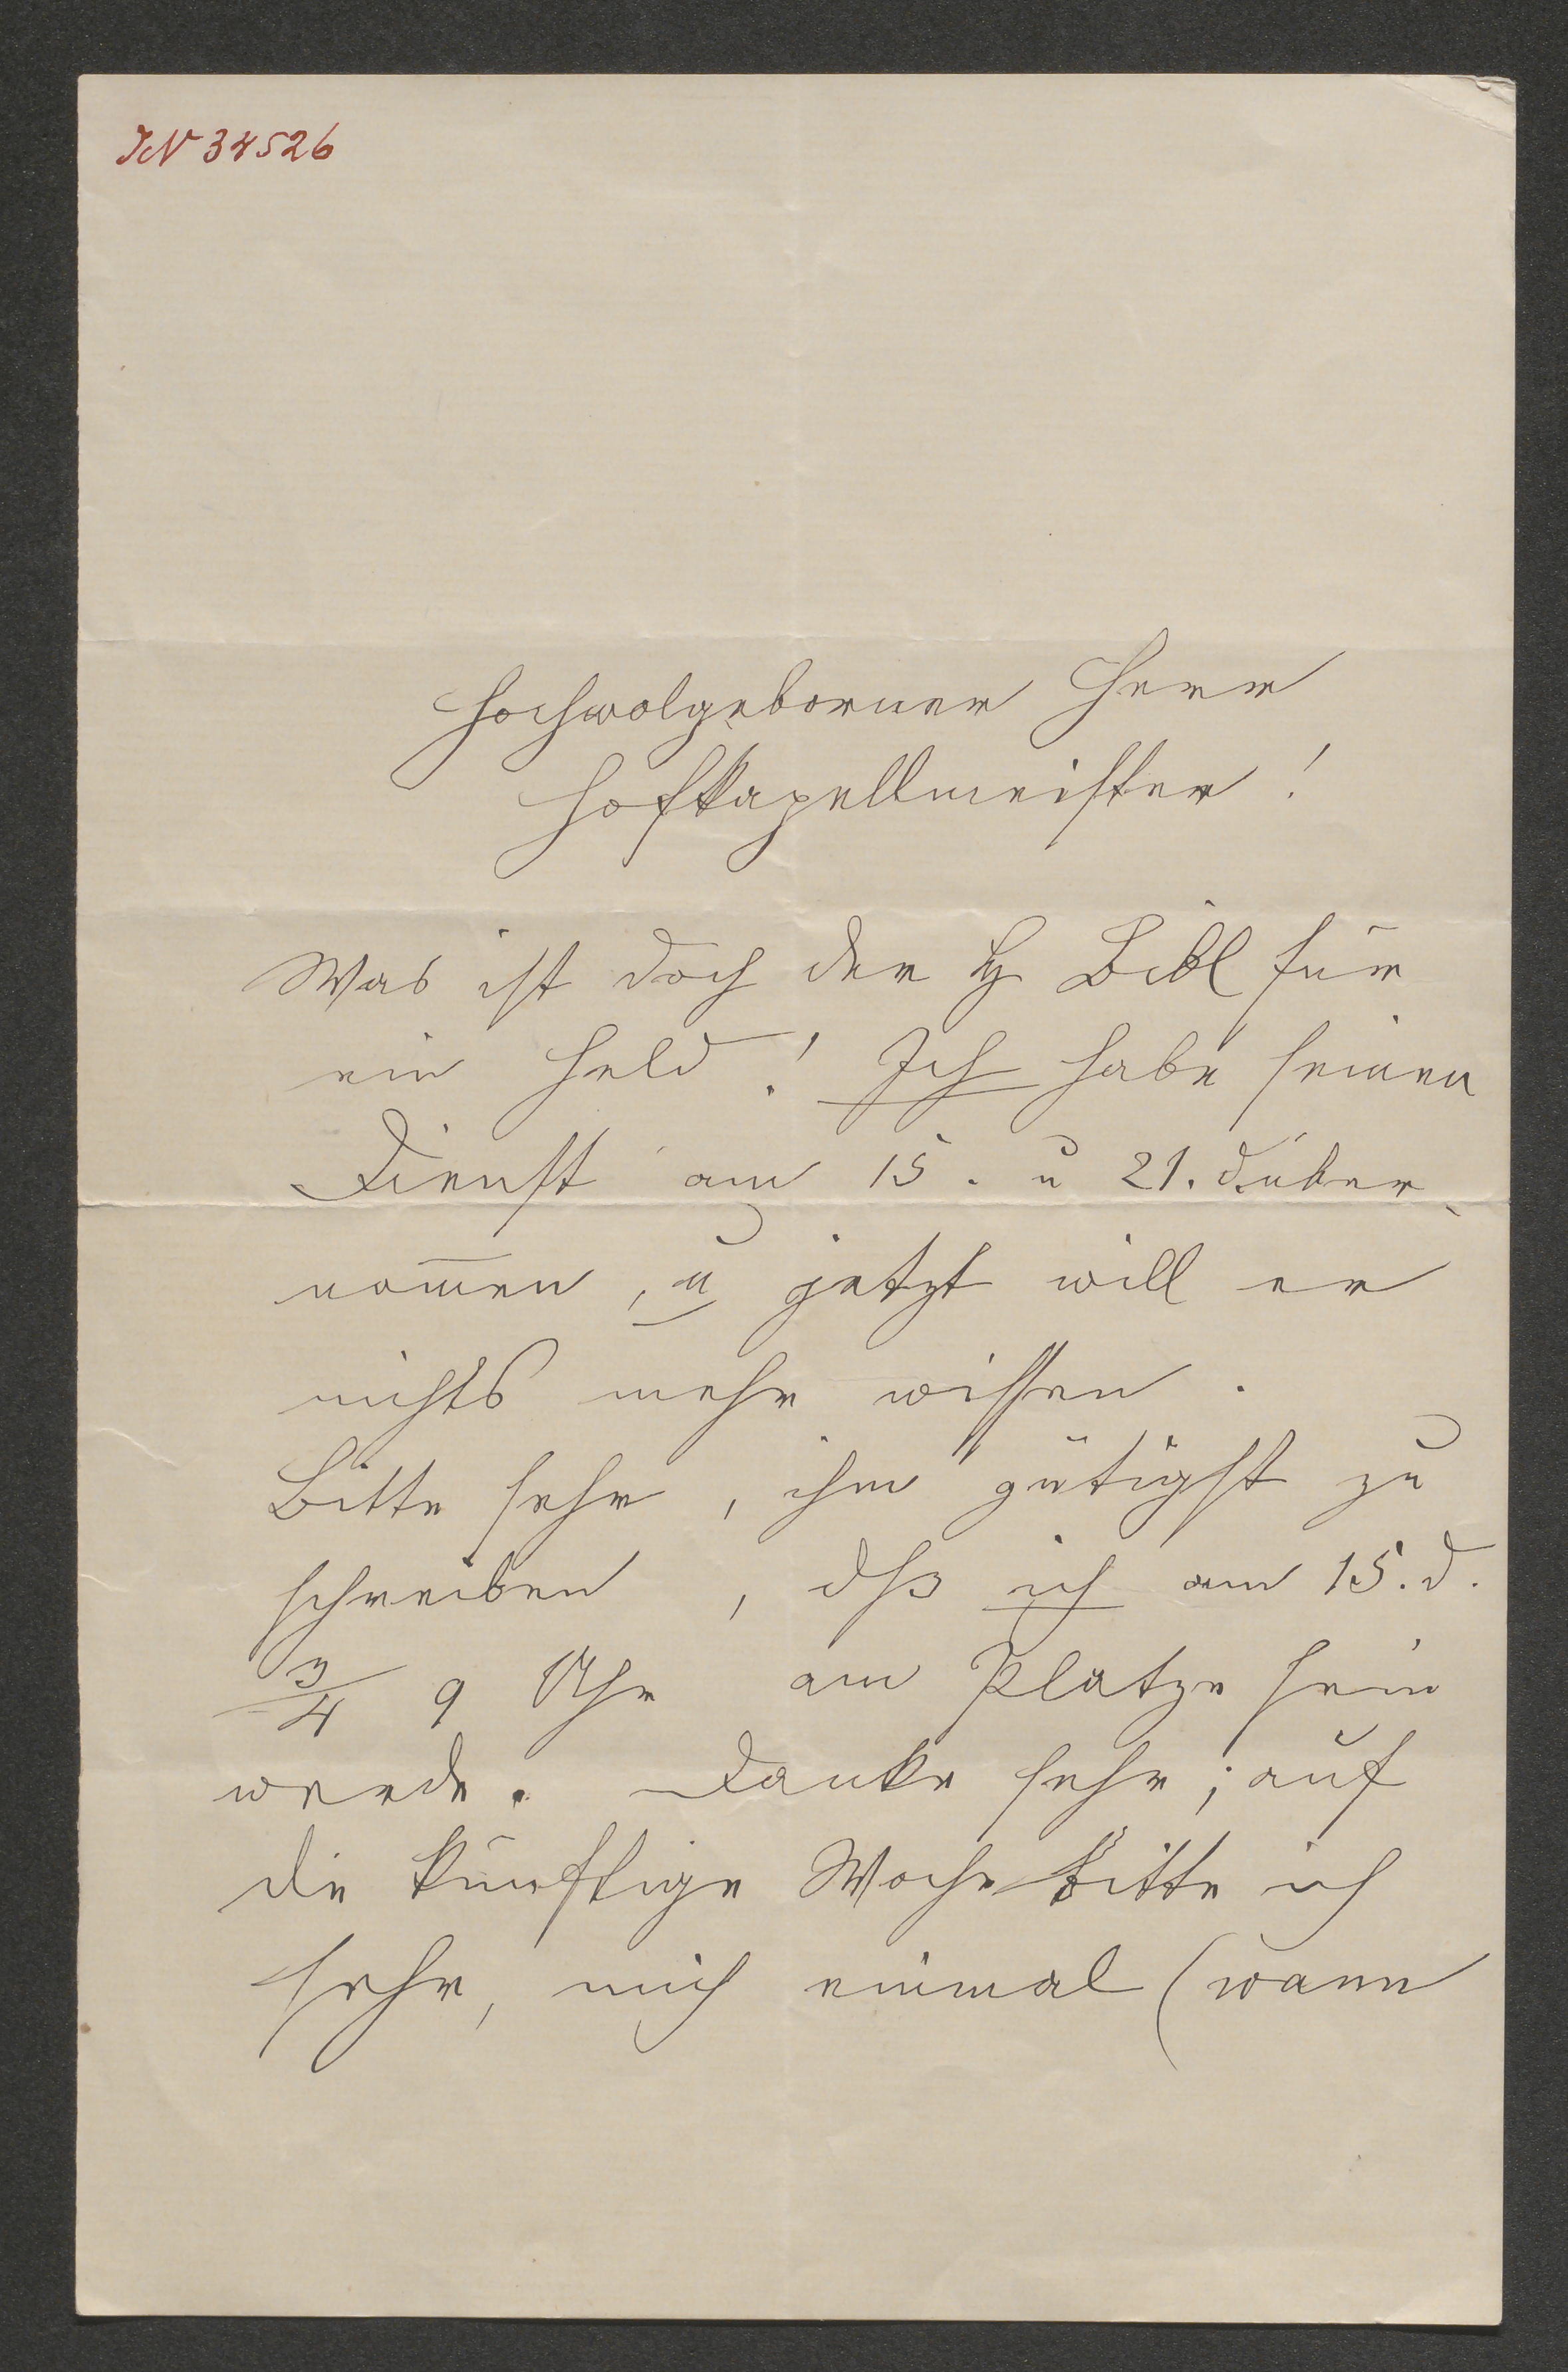 IN 34526
Hochwolgeborner Herr
Hofkapellmeister!
Was ist doch der H Bibl für
ein Held! Ich habe seinen
Dienst am 15. u 21. d. über
nom̅en, u jetzt will er
nichts mehr wissen.
Bitte sehr, ihm gütigst zu
schreiben, dß ich am 15. d.
3/4 9 Uhr am Platze sein
werde. Danke sehr; auf
die künftige Woche bitte ich
sehr, mich einmal (wann